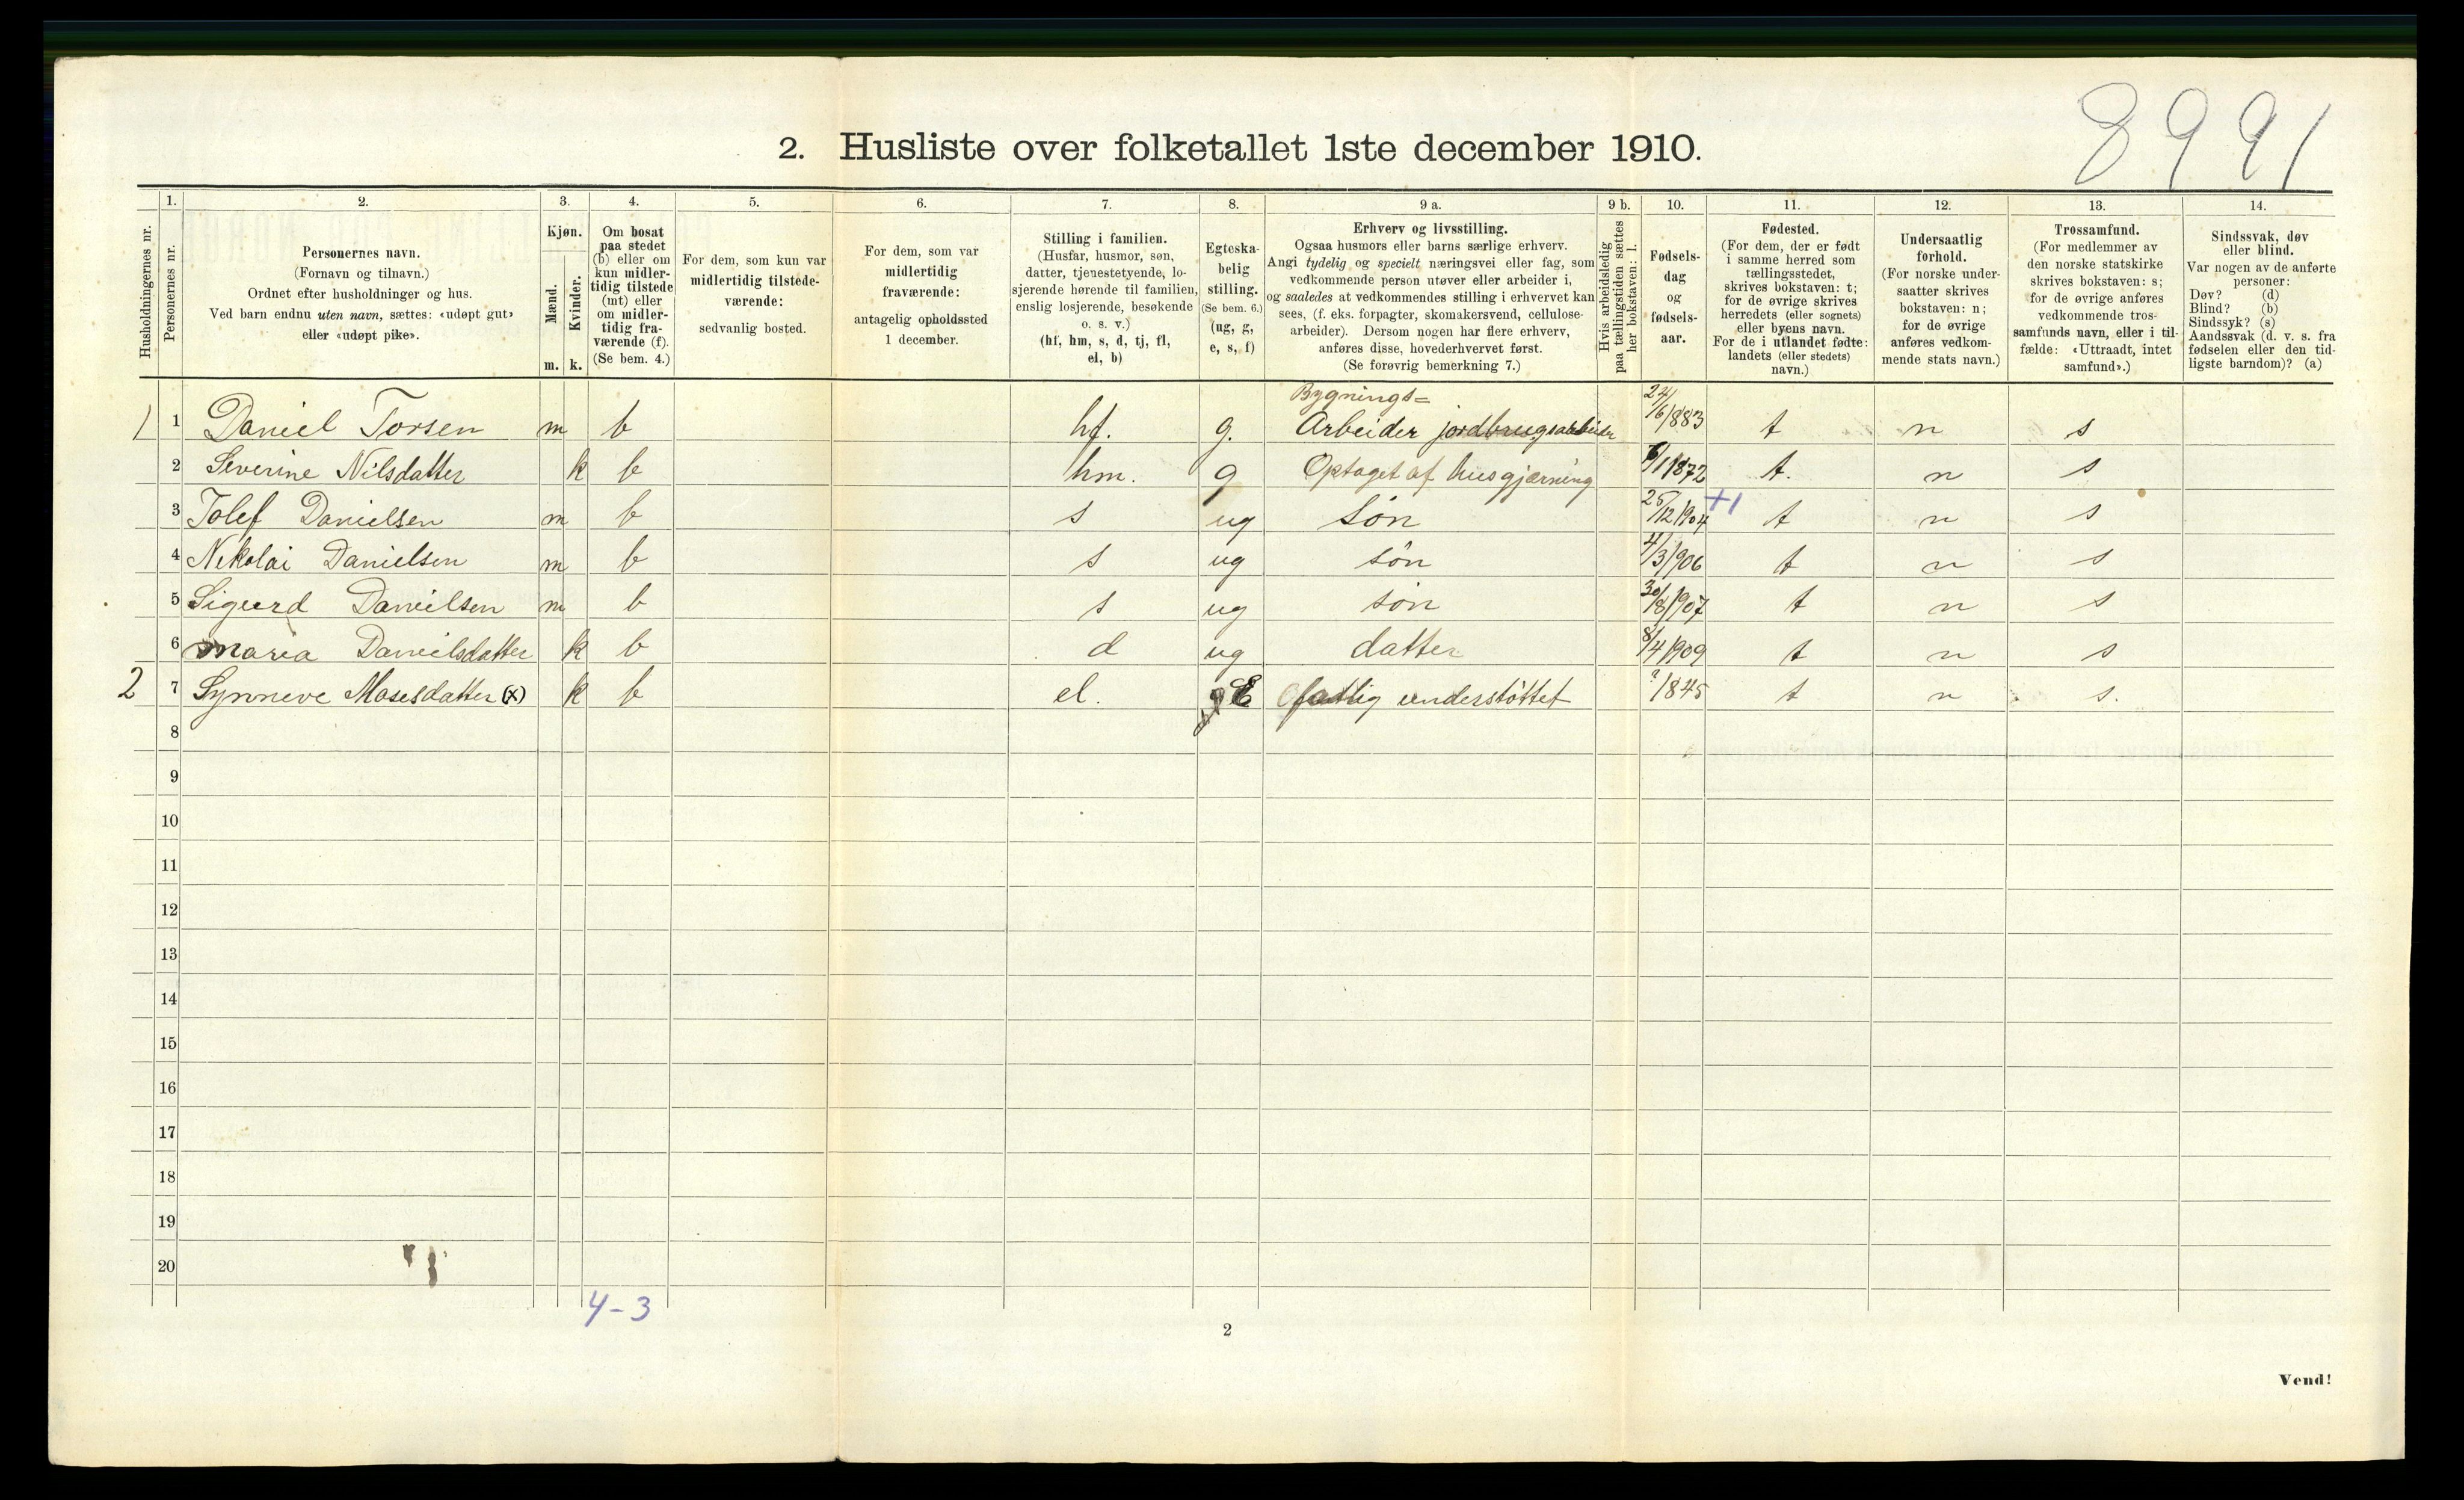 8991
2. Husliste over folketallet 1ste december 1910.
Husholdningernes nr.
1.
Personernes nr.
2.
Personernes navn.
(Fornavn og tilnavn.)
Ordnet efter husholdninger og hus.
Ved barn endnu uten navn, sættes: «udøpt gut»
eller «udøpt pike».
3.
Kjøn.
Mænd.
m.
Kvinder.
k.
4.
Om bosat
paa stedet
(b) eller om
kun midler-
tidig tilstede
(mt) eller
om midler-
tidig fra-
værende (f).
(Se bem. 4.)
5.
For dem, som kun var
midlertidig tilstede-
værende:
sedvanlig bosted.
6.
For dem, som var
midlertidig
fraværende:
antagelig opholdssted
1 december.
7.
Stilling i familien.
(Husfar, husmor, søn,
datter, tjenestetyende, lo-
sjerende hørende til familien,
enslig losjerende, besøkende
o. s. v.)
(hf, hm, s, d, tj, fl,
el, b)
8.
Egteska-
belig
stilling.
(Se bem. 6.)
(ug, g,
e, s, f)
9 a.
Erhverv og livsstilling.
Ogsaa husmors eller barns særlige erhverv.
Angi tydelig og specielt næringsvei eller fag, som
vedkommende person utøver eller arbeider i,
og saaledes at vedkommendes stilling i erhvervet kan
sees, (f. eks. forpagter, skomakersvend, cellulose-
arbeider). Dersom nogen har flere erhverv,
anføres disse, hovederhvervet først.
(Se forøvrig bemerkning 7.)
9 b.
Hvis arbeidsledig
paa tællingstiden sættes
her bokstaven: l.
10.
Fødsels-
dag
og
fødsels-
aar.
11.
Fødested.
(For dem, der er født
i samme herred som
tællingsstedet,
skrives bokstaven: t;
for de øvrige skrives
herredets (eller sognets)
eller byens navn.
For de i utlandet fødte:
landets (eller stedets)
navn.)
12.
Undersaatlig
forhold.
(For norske under-
saatter skrives
bokstaven: n;
for de øvrige
anføres vedkom-
mende stats navn.)
13.
Trossamfund.
(For medlemmer av
den norske statskirke
skrives bokstaven: s;
for de øvrige anføres
vedkommende tros-
samfunds navn, eller i til-
fælde: «Uttraadt, intet
samfund».)
14.
Sindssvak, døv
eller blind.
Var nogen av de anførte
personer:
Døv? (d)
Blind? (b)
Sindssyk? (s)
Aandssvak (d. v. s. fra
fødselen eller den tid-
ligste barndom)? (a)
Bygnings=
1 1 Daniel Torsen m b hf. g. Arbeider jordbrugsarbeider 24/6/883 t n s
2 Severine Nilsdatter k b hm. g Optaget af husgjærning /1 1872 t. n s
+1
3 Tolef Danielsen m b s ug Søn 25/12/904 t n s
4 Nikolai Danielsen m b s ug søn 4/3/906 t n s
5 Sigurd Danielsen m b s ug søn 30/8/907 t n s
6 Maria Danielsdatter k b d ug datter 8/4/909 t n s
2 7 Synneve Mosesdatter (x) k b el. E fattig understøttet ?/845 t n s.
8
9
10
11
12
13
14
15
16
17
18
19
20
4-3
2
Vend!